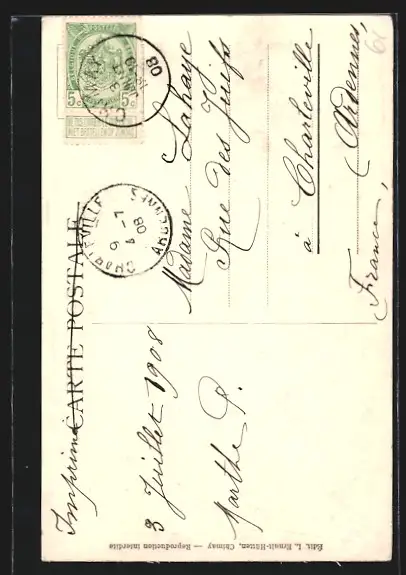 CARTE POSTALE
Imprimé
3 Juillet 1908
Marthe P.
Madame Lahaye
Rue des Juifs
à Charleville
(Ardennes,
France,
5c 5c
NIET BESTELLEN OP ZONDAG
08
CHARLEVILLE
ARDENNES
08
Edit. L. Ernult-Hütten, Chimay — Reproduction interdite
61